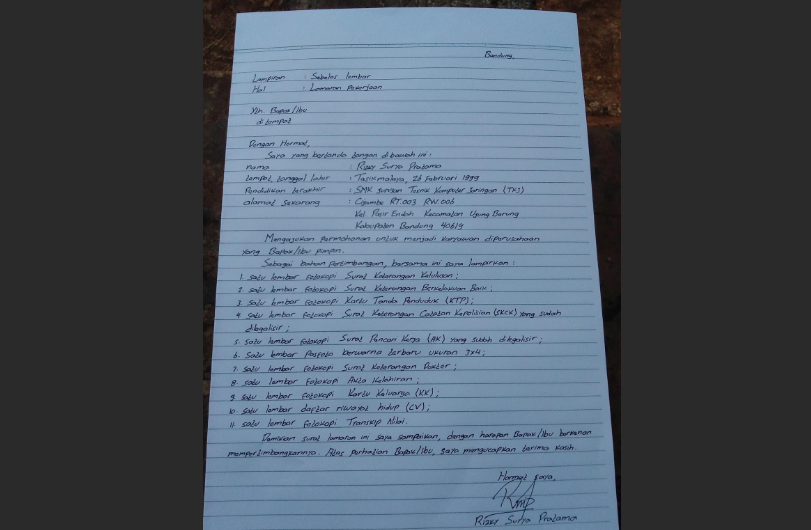 Bandung,
Lampiran : Sebelas lembar
Hal : Lamaran Pekerjaan
Yth. Bapak/Ibu
di tempat
Dengan Hormat,
Saya yang bertanda tangan dibawah ini :
nama : Rizky Surya Pratama
tempat, tanggal lahir : Tasikmalaya, 26 Februari 1999
Pendidikan terakhir : SMK Jurusan Teknik Komputer Jaringan (TKJ)
alamat sekarang : Cigambo RT.003 RW.006
Kel. Pasir Endah Kecamatan Ujung Berung
Kabupaten Bandung 40619
Mengajukan permohonan untuk menjadi karyawan diperusahaan
yang Bapak/Ibu pimpin.
Sebagai bahan pertimbangan, bersama ini saya lampirkan :
1. satu lembar fotokopi Surat Keterangan Kelulusan;
2. satu lembar fotokopi Surat Keterangan Berkelakuan Baik;
3. satu lembar fotokopi Kartu Tanda Penduduk (KTP);
4. satu lembar fotokopi Surat Keterangan Catatan Kepolisian (SKCK) yang sudah
dilegalisir;
5. satu lembar fotokopi Surat Pencari Kerja (AK) yang sudah dilegalisir;
6. Satu lembar Pasfoto berwarna terbaru ukuran 3x4;
7. satu lembar fotokopi Surat Keterangan Dokter;
8. satu lembar fotokopi Akta Kelahiran;
9. satu lembar fotokopi Kartu Keluarga (KK);
10. satu lembar daftar riwayat hidup (CV);
11. satu lembar fotokopi Transkip Nilai.
Demikian surat lamaran ini saya sampaikan, dengan harapan Bapak/Ibu berkenan
mempertimbangkannya. Atas perhatian Bapak/Ibu, saya mengucapkan terima kasih.
Hormat saya,
Rizky Surya Pratama